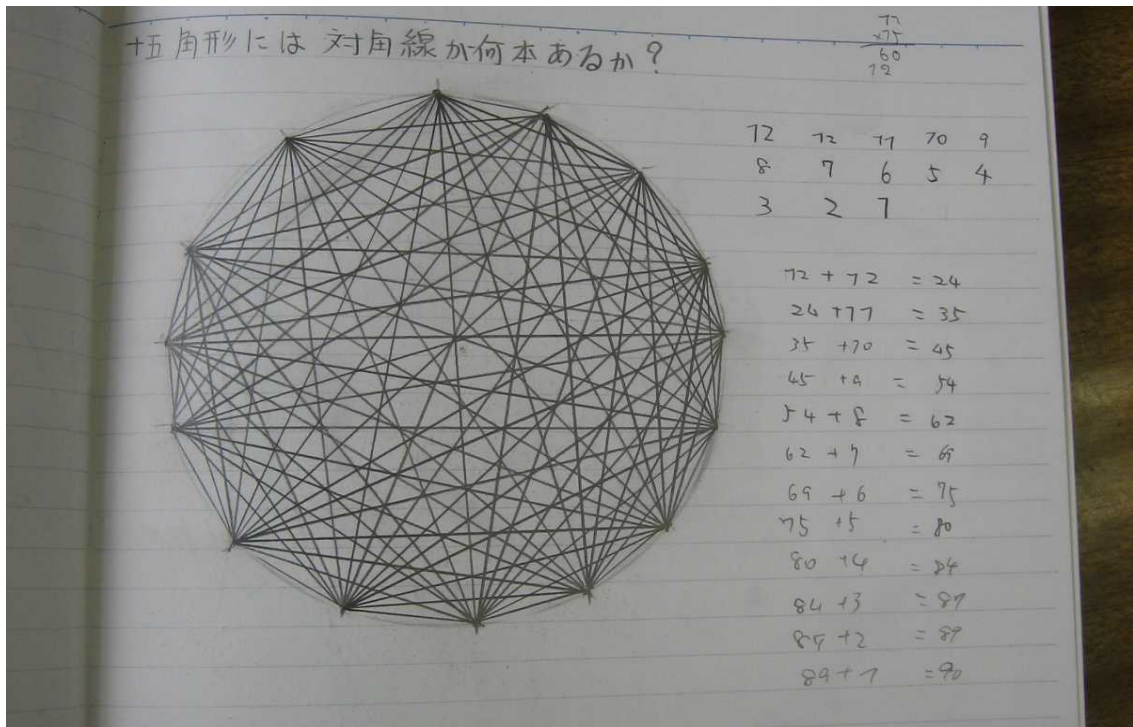 十五角形には 対角線が何本あるか？
×15
60
12
12 12 11 10 9
8 7 6 5 4
3 2 1
12 + 12 = 24
24 + 11 = 35
35 + 10 = 45
45 + 9 = 54
54 + 8 = 62
62 + 7 = 69
69 + 6 = 75
75 + 5 = 80
80 + 4 = 84
84 + 3 = 87
87 + 2 = 89
89 + 1 = 90